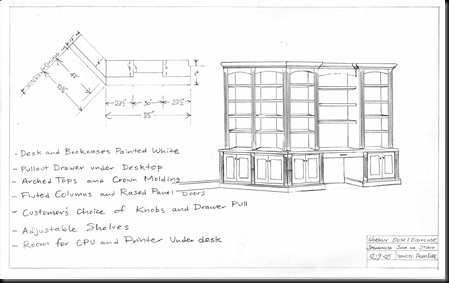 27½" 30" 27½"
85"
- Desk and Bookcases Painted White
- Pullout Drawer under Desktop
- Arched Tops and Crown Molding
- Fluted Columns and Rased Panel Doors
- Customer's Choice of Knobs and Drawer Pull
- Adjustable Shelves
- Room for CPU and Printer Under desk
Desk/Bookcase